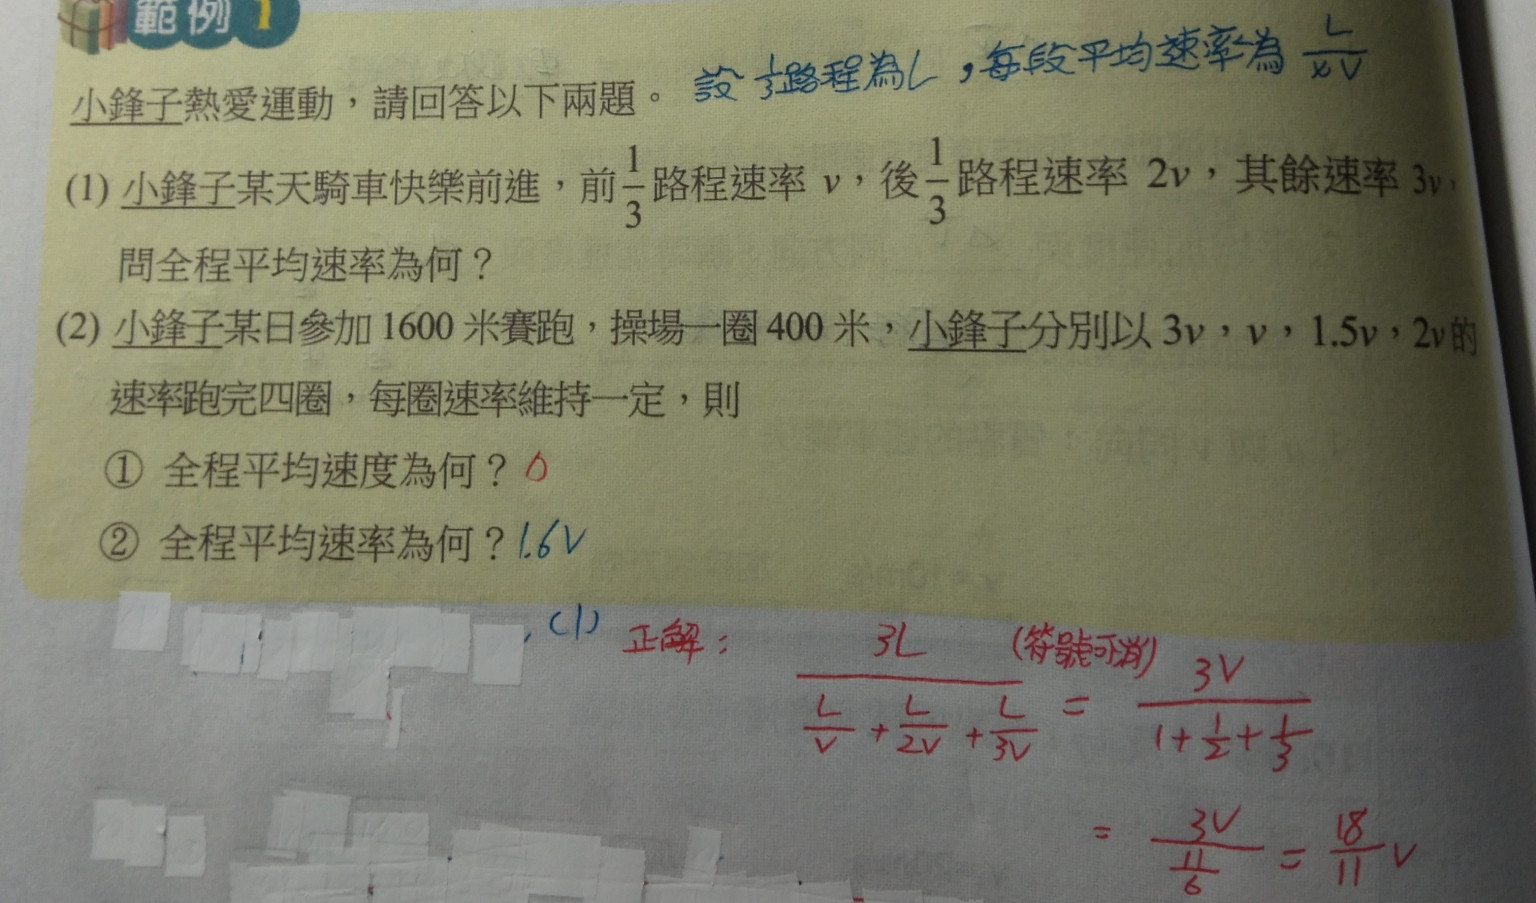 範例 1
設 1/3路程為L,每段平均速率為 L/xV
小鋒子熱愛運動,請回答以下兩題。
(1) 小鋒子某天騎車快樂前進,前 1/3 路程速率 v,後 1/3 路程速率 2v,其餘速率 3v,
問全程平均速率為何?
(2) 小鋒子某日參加 1600 米賽跑,操場一圈 400 米,小鋒子分別以 3v,v,1.5v,2v 的
速率跑完四圈,每圈速率維持一定,則
① 全程平均速度為何? 0
② 全程平均速率為何? 1.6V
(1) 正解: 3L / (L/V + L/2V + L/3V) (符號可消) = 3V / (1 + 1/2 + 1/3)
= 3V / (11/6) = 18/11 V